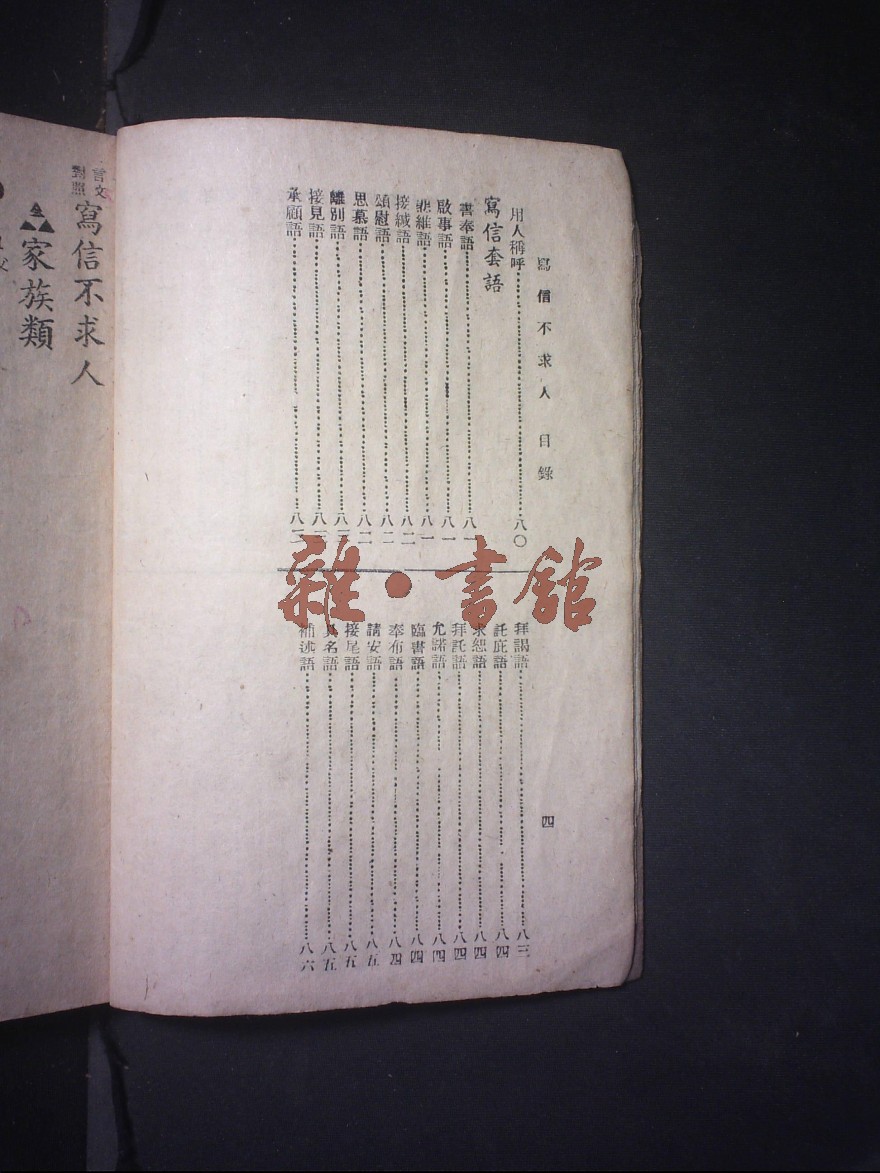 寫信不求人 目錄
四
用人稱呼…………八〇
寫信套語
書奉語…………八一
啟事語…………八一
恭維語…………八一
接緘語…………八二
頌慰語…………八二
思慕語…………八二
離別語…………八二
接見語…………八三
承顧語…………八三
拜謁語…………八三
託庇語…………八四
求恕語…………八四
拜託語…………八四
允諾語…………八四
臨書語…………八四
奉布語…………八四
請安語…………八五
接尾語…………八五
具名語…………八五
補述語…………八六
言文對照 寫信不求人
家族類
雜·書館